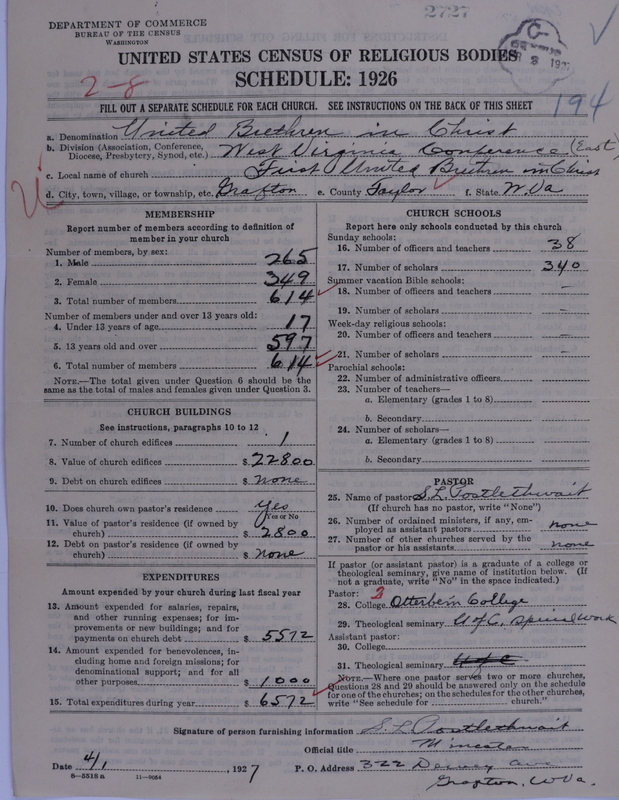 DEPARTMENT OF COMMERCE
BUREAU OF THE CENSUS
WASHINGTON
2727
UNITED STATES CENSUS OF RELIGIOUS BODIES
SCHEDULE: 1926
2-8
FILL OUT A SEPARATE SCHEDULE FOR EACH CHURCH. SEE INSTRUCTIONS ON THE BACK OF THIS SHEET
194
a. Denomination United Brethren in Christ
b. Division (Association, Conference, Diocese, Presbytery, Synod, etc.) West Virginia Conference (East)
c. Local name of church First United Brethren in Christ
d. City, town, village, or township, etc. Grafton e. County Taylor f. State W. Va
MEMBERSHIP
Report number of members according to definition of
member in your church
Number of members, by sex:
1. Male 265
2. Female 349
3. Total number of members 614
Number of members under and over 13 years old:
4. Under 13 years of age 17
5. 13 years old and over 597
6. Total number of members 614
NOTE.—The total given under Question 6 should be the
same as the total of males and females given under Question 3.
CHURCH BUILDINGS
See instructions, paragraphs 10 to 12
7. Number of church edifices 1
8. Value of church edifices $ 22800
9. Debt on church edifices $ None
10. Does church own pastor's residence? Yes
Yes or No
11. Value of pastor's residence (if owned by
church) $ 2800
12. Debt on pastor's residence (if owned by
church) $ None
EXPENDITURES
Amount expended by your church during last fiscal year
13. Amount expended for salaries, repairs,
and other running expenses; for im-
provements or new buildings; and for
payments on church debt $ 5572
14. Amount expended for benevolences, in-
cluding home and foreign missions; for
denominational support; and for all
other purposes $ 1000
15. Total expenditures during year $ 6572
CHURCH SCHOOLS
Report here only schools conducted by this church
Sunday schools:
16. Number of officers and teachers 38
17. Number of scholars 340
Summer vacation Bible schools:
18. Number of officers and teachers —
19. Number of scholars —
Week-day religious schools:
20. Number of officers and teachers —
21. Number of scholars —
Parochial schools:
22. Number of administrative officers
23. Number of teachers—
a. Elementary (grades 1 to 8)
b. Secondary
24. Number of scholars—
a. Elementary (grades 1 to 8)
b. Secondary
PASTOR
25. Name of pastor S. L. Postlethwait
(If church has no pastor, write "None")
26. Number of ordained ministers, if any, em-
ployed as assistant pastors none
27. Number of other churches served by the
pastor or his assistants none
If pastor (or assistant pastor) is a graduate of a college or
theological seminary, give name of institution below. (If
not a graduate, write "No" in the space indicated.)
Pastor: 3
28. College Otterbein College
29. Theological seminary U of C, Special Work
Assistant pastor:
30. College
31. Theological seminary U of C
NOTE.—Where one pastor serves two or more churches,
Questions 28 and 29 should be answered only on the schedule
for one of the churches; on the schedules for the other churches,
write "See schedule for church."
Signature of person furnishing information S. L. Postlethwait
Official title Minister
Date 4/1, 1927 P. O. Address 322 Dewey Ave
8—5518 a 11—9054
Grafton, W Va.